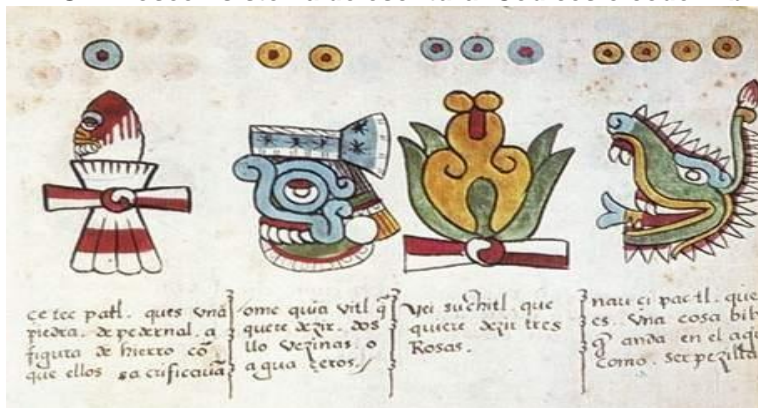 ce tec patl. ques vna
piedra. de pedernal. a
figura de hierro cõ
que ellos sacrificauã
ome quia vitl q̃
quere dezir. dos
llo vezinas o
agua çeros.
yei suchitl. que
quiere dezir tres
Rosas.
naui ci pactl. que
es. vna cosa bib
q̃ anda en el agu
como. serpezilla